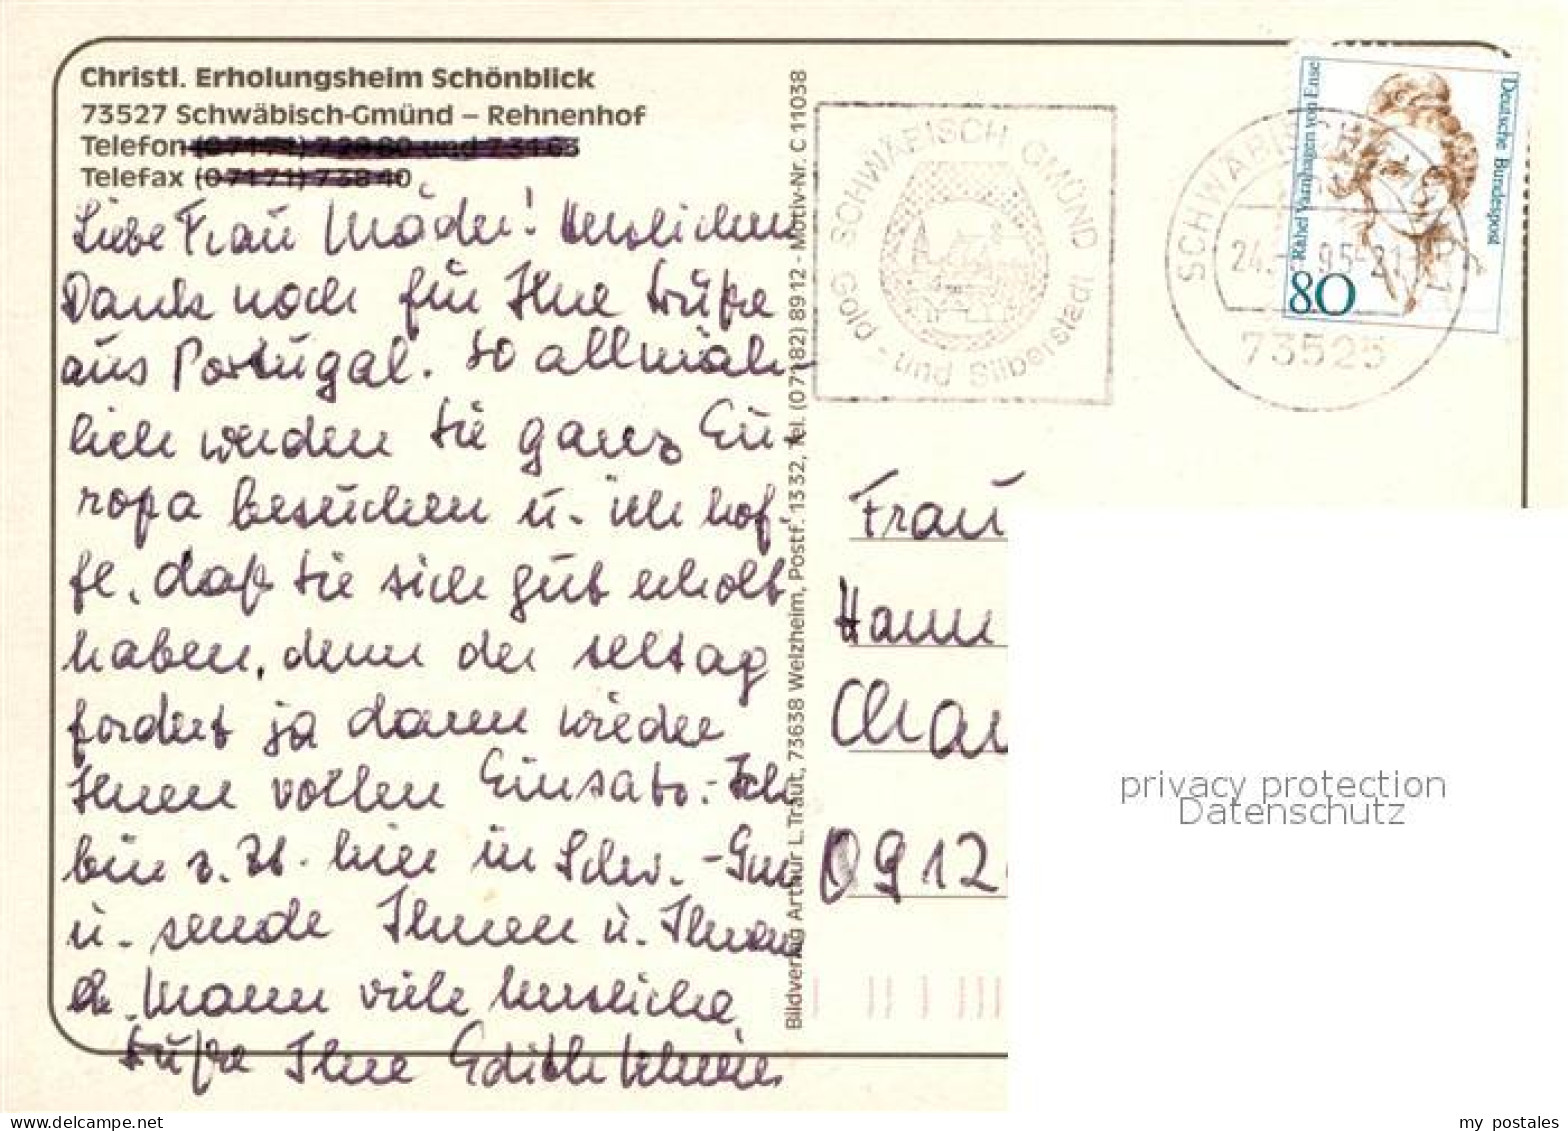 Christl. Erholungsheim Schönblick
73527 Schwäbisch-Gmünd – Rehnenhof
Telefon (07171) 72980 und 73163
Telefax (07171) 73840
Liebe Frau Mäder! Herzlichen
Dank noch für Ihre Grüße
aus Portugal. So allmäh-
lich werden Sie ganz Eu-
ropa besuchen u. ich hof-
fe, daß Sie sich gut erholt
haben, denn der Alltag
fordert ja dann wieder
Ihren vollen Einsatz. - Ich
bin z. Zt. hier in Schw. - Gm
u. sende Ihnen u. Ihrem
Mann viele herzliche
Grüße Ihre Edith
Bildverlag Arthur L. Traut, 73638 Welzheim, Postf. 1332, Tel. (07182) 8912 - Motiv-Nr. C 11038
SCHWÄBISCH GMÜND
Gold- und Silberstadt
SCHWÄBISCH
24. 95-21
73525
Rahel Varnhagen von Ense
Deutsche Bundespost
80
Frau
Hann
Char
0912
privacy protection
Datenschutz
my postales